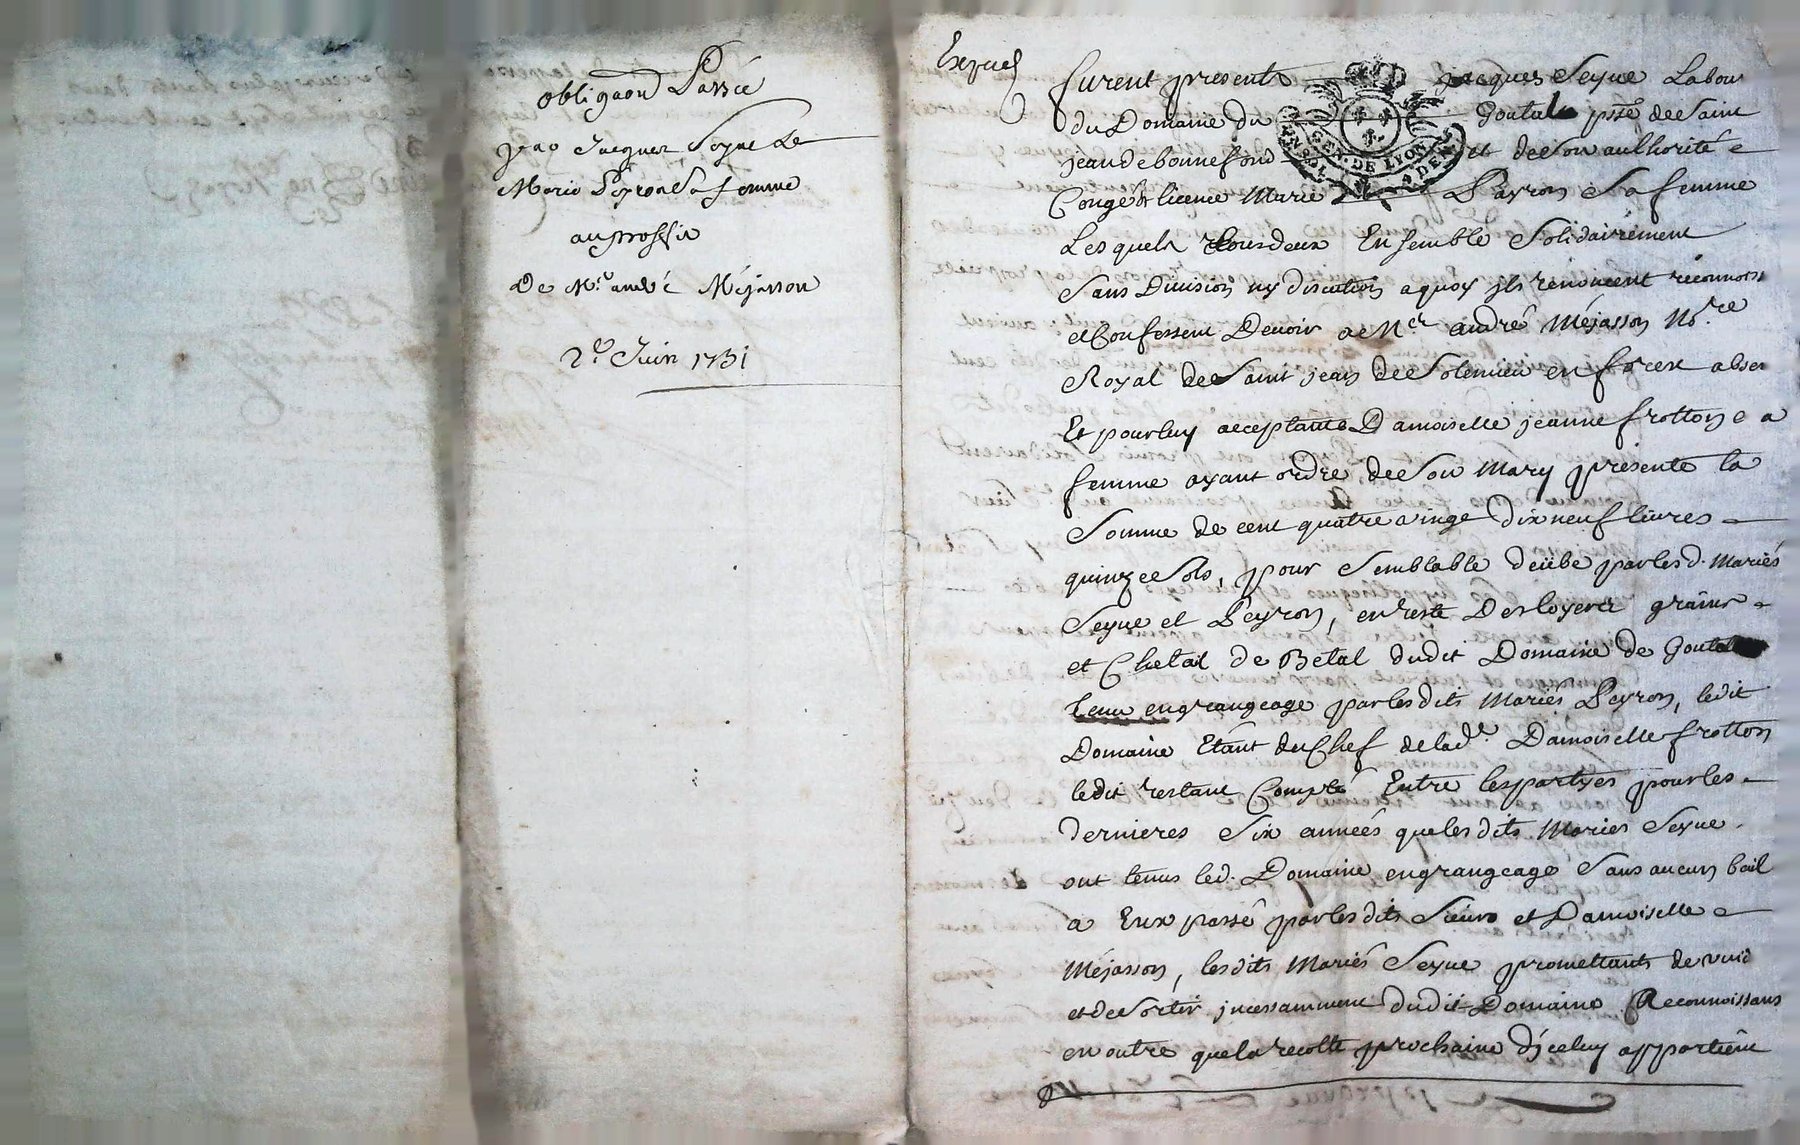 obligaon Passée
par Jacques Seyue &
Marie Peyron sa femme
au proffit
De Mr. andré Méjasson
2e. Juin 1731
Expues
furent presents jacques Seyue Labour
du Domaine du Goutal psse de Saint
jean de bonnefond et de Son authorité
Congé & licence Marie Payron Sa femme
Lesquels tous deux Ensemble Solidairement
Sans Division ny discution a quoy jls renoncent reconnoiss
et Confessent Devoir a Me andré Méjasson No.re
Royal de Saint jean de Solemieu en forest absen
Et pour luy acceptante Damoiselle jeanne frotton sa
femme ayant ordre de Son Mary presente la
Somme de cent quatre vingt dix neuf livres
quinze Sols, pour Semblable deübe par lesd. Mariés
Seyue et Peyron, en reste Des loyers grains
et Chetail de Betail dudit Domaine de Goutal
tenu en grangeage par lesdits Mariés Peyron, ledit
Domaine Etant du Chef de lade. Damoiselle frotton
ledit restant Compté Entre les partyes pour les
dernieres Six années que lesdits Mariés Seyue
ont tenus led. Domaine en grangeage Sans aucun bail
a Eux passé par lesdits Sieurs et Damoiselle
Méjasson, lesdits Mariés Seyue promettants de vuid
et de Sortir jncessamment dudit Domaine Reconnoissans
en outre que la recolte prochaine d'jceluy appartient